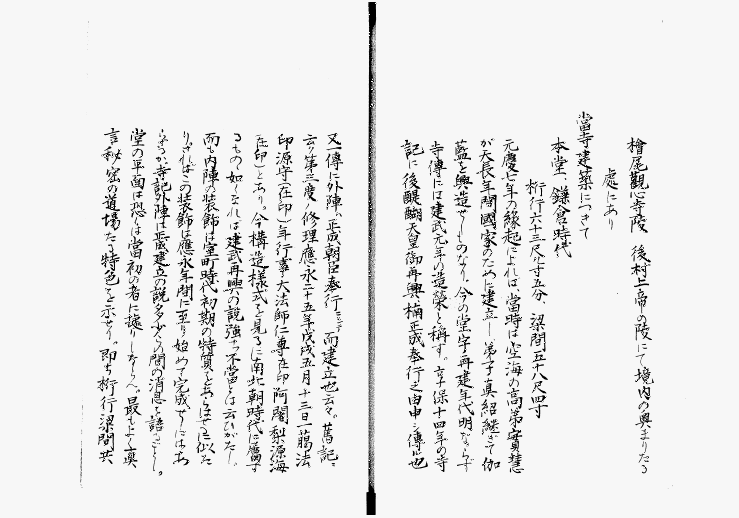 檜尾觀心寺陵 後村上帝の陵にて境内の奥まりたる
處にあり
當寺建築につきて
本堂、鎌倉時代
桁行六十三尺八寸五分、梁間五十八尺四寸
元慶七年の緣起によれば、當時は空海の高弟實慧
が天長年間國家のために建立し弟子眞紹継ぎて伽
藍を興造せしものなり、今の堂宇再建年代明ならず
寺傳には建武元年の造築と稱す。享保十四年の寺
記に後醍醐天皇御再興楠正成奉行之由申シ傳也
又一傳に外陣ハ正成朝臣奉行ニシテ而建立也云々。舊記ニ
云ク第三度ノ修理應永二十五年戊戌五月十三日一﨟法
印源守(在印)年行事大法師仁專在印阿闍梨源海
(在印)とあり。今構造様式を見るに南北朝時代に属す
るもの如くなれば建武再興の説強ち不當とは云ひがたし、
而も内陣の装飾は室町時代初期の特質をあらはせるに似た
りさればこの装飾は應永年間に至り始めて完成せしにはあ
らざるか寺記外陣は正成建立の説多少この間の消息を語るごとし。
堂の平面は恐くは當初の者に據りしならん。最もよく眞
言秘密の道場たる特色を示せり。即ち桁行梁間共